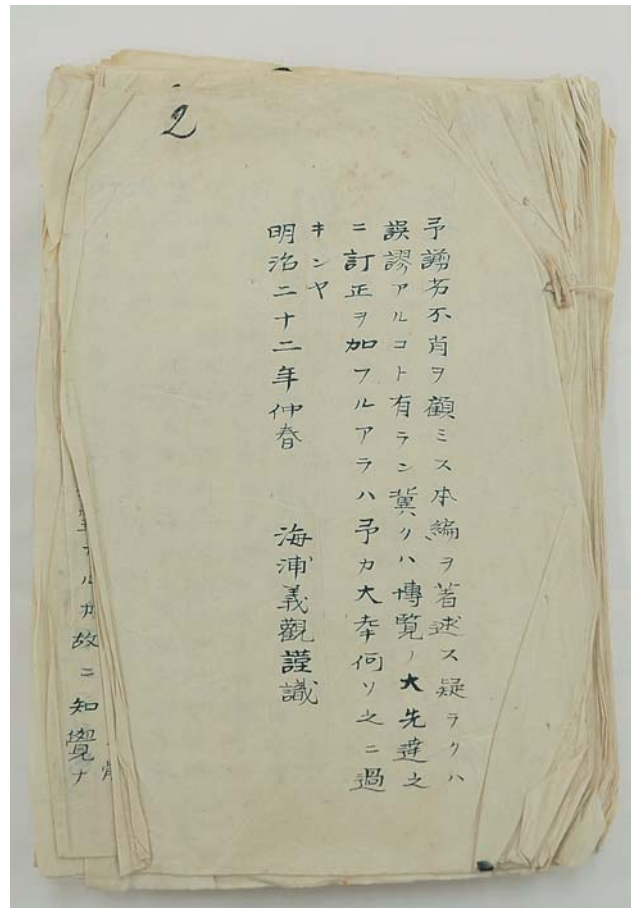 2
予謭劣不肖ヲ顧ミス本編ヲ著述ス疑ラクハ
誤謬アルコト有ラン冀クハ博覧ノ大先達之
ニ訂正ヲ加フルアラハ予カ大幸何ソ之ニ過
キンヤ
明治二十二年仲春 海浦義觀謹識
ナルカ故ニ知覺ナ